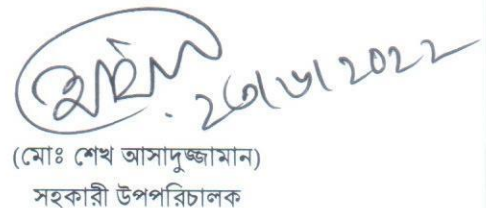 ২৩/৬/২০২২
(মোঃ শেখ আসাদুজ্জামান)
সহকারী উপপরিচালক